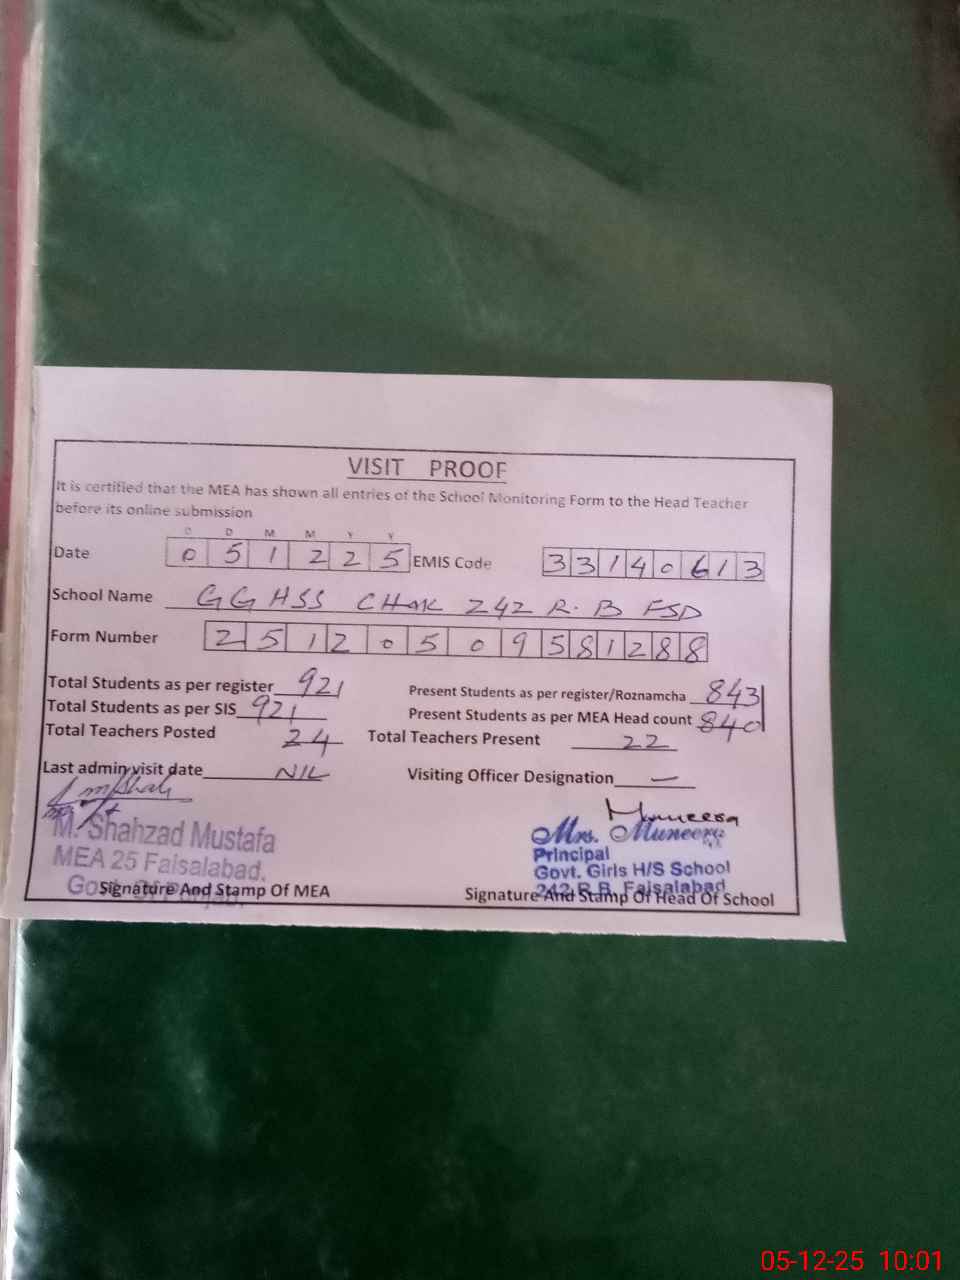 VISIT PROOF
It is certified that the MEA has shown all entries of the School Monitoring Form to the Head Teacher
before its online submission
D D M M Y Y
Date 0 5 1 2 2 5 EMIS Code 3 3 1 4 0 6 1 3
School Name GGHSS CHAK 242 R.B FSD
Form Number 2 5 1 2 0 5 0 9 5 8 1 2 8 8
Total Students as per register 921 Present Students as per register/Roznamcha 843
Total Students as per SIS 921 Present Students as per MEA Head count 840
Total Teachers Posted 24 Total Teachers Present 22
Last admin visit date NIL Visiting Officer Designation —
Muneera
M. Shahzad Mustafa
MEA 25 Faisalabad,
Govt. Of Punjab.
Signature And Stamp Of MEA
Mrs. Muneera
Principal
Govt. Girls H/S School
242 R.B. Faisalabad
Signature And Stamp Of Head Of School
05-12-25 10:01